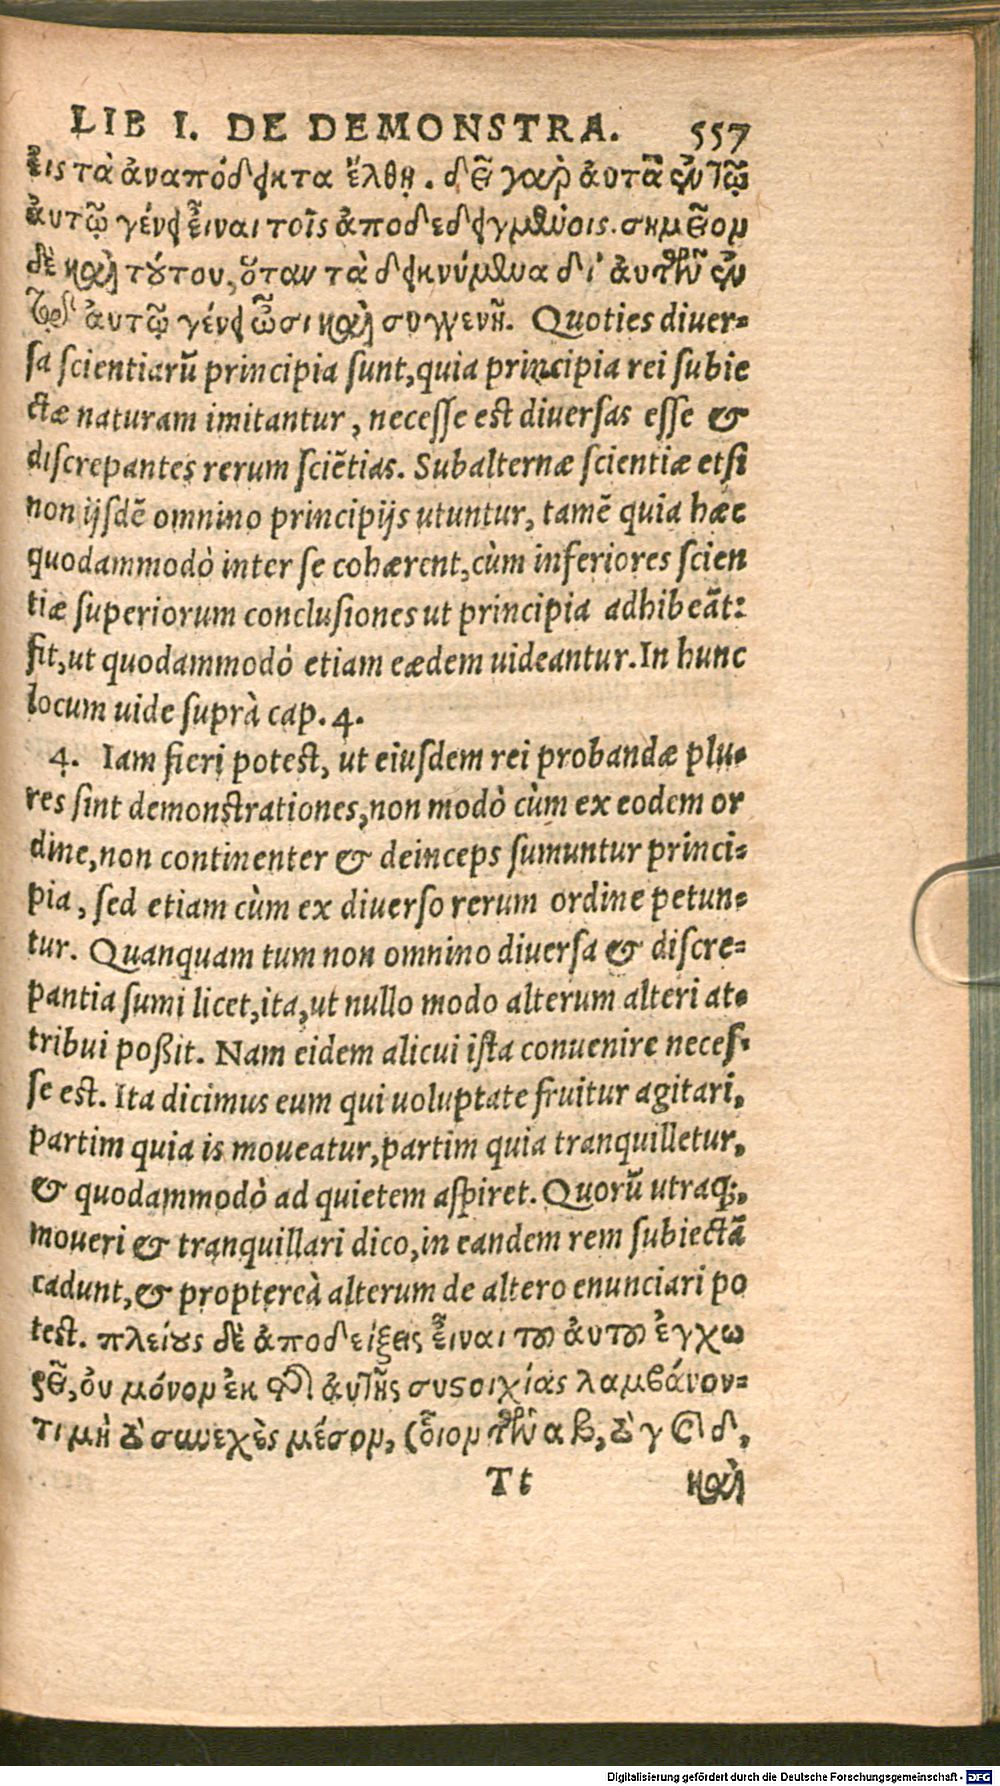 LIB I. DE DEMONSTRA. 557
εἰς τὰ ἀναπόδεικτα ἔλθῃ. δεῖ γὰρ αὐτὰ ἐν τῷ
αὐτῷ γένει εἶναι τοῖς ἀποδεδειγμένοις. σημεῖον
δὲ καὶ τούτου, ὅταν τὰ δεικνύμενα δι' αὐτῶν ἐν
αὐτῷ γένει ὦσι καὶ συγγενῆ. Quoties diuer-
sa scientiarū principia sunt, quia principia rei subie
ctæ naturam imitantur, necesse est diuersas esse &
discrepantes rerum sciētias. Subalternæ scientiæ etsi
non ijsdē omnino principijs utuntur, tamē quia hæc
quodammodò inter se cohærent, cùm inferiores scien
tiæ superiorum conclusiones ut principia adhibeāt:
fit, ut quodammodò etiam eædem uideantur. In hunc
locum uide suprà cap. 4.
4. Iam fieri potest, ut eiusdem rei probandæ plu-
res sint demonstrationes, non modò cùm ex eodem or
dine, non continenter & deinceps sumuntur princi-
pia, sed etiam cùm ex diuerso rerum ordine petun-
tur. Quanquam tum non omnino diuersa & discre-
pantia sumi licet, ita, ut nullo modo alterum alteri at-
tribui poßit. Nam eidem alicui ista conuenire neces-
se est. Ita dicimus eum qui uoluptate fruitur agitari,
partim quia is moueatur, partim quia tranquilletur,
& quodammodò ad quietem aspiret. Quorū utraq;,
moueri & tranquillari dico, in eandem rem subiectā
cadunt, & proptereà alterum de altero enunciari po
test. πλείους δὲ ἀποδείξεις εἶναι τοῦ αὐτοῦ ἐγχω
ρεῖ, οὐ μόνον ἐκ τῆς αὐτῆς συστοιχίας λαμβάνον-
τι μὴ τὸ συνεχὲς μέσον, (οἷον τῶν α β, τὸ γ καὶ δ,
Tt καὶ